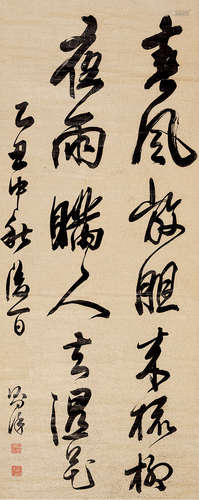 春風放胆来梳柳
夜雨瞞人去潤花
乙丑中秋後一日